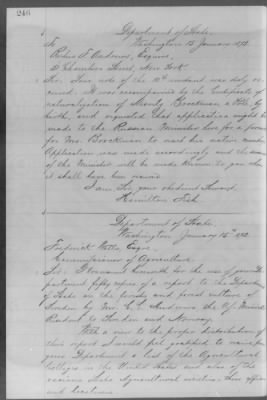 246
Department of State,
Washington 15 January 1872.
To
Esquire,
Chambers Street, New York.
Sir: Your note of the 12th instant was duly re-
ceived. It was accompanied by the Certificate of
naturalization of Brockman a Pole, by
birth, and requested that application might be
made to the Russian Minister here for a permit
for Mr. Brockman to visit his native country.
Application was made accordingly and the answer
of the Minister will be made known to you when
it shall have been received.
I am Sir, your obedient Servant,
Hamilton Fish
Department of State,
Washington, January 15th, 1872.
Frederick Watts, Esqre
Commissioner of Agriculture.
Sir: I transmit herewith for the use of your De-
partment fifty copies of a report to the Department
of State on the forestry and forest culture of
Sweden by Mr. C. C. Andrews, the U.S. Minister
Resident to Sweden and Norway.
With a view to the proper distribution of
this report I would feel gratified to receive from
your Department a list of the Agricultural
Colleges in the United States and also of the
various State Agricultural societies, their officers
and locations.